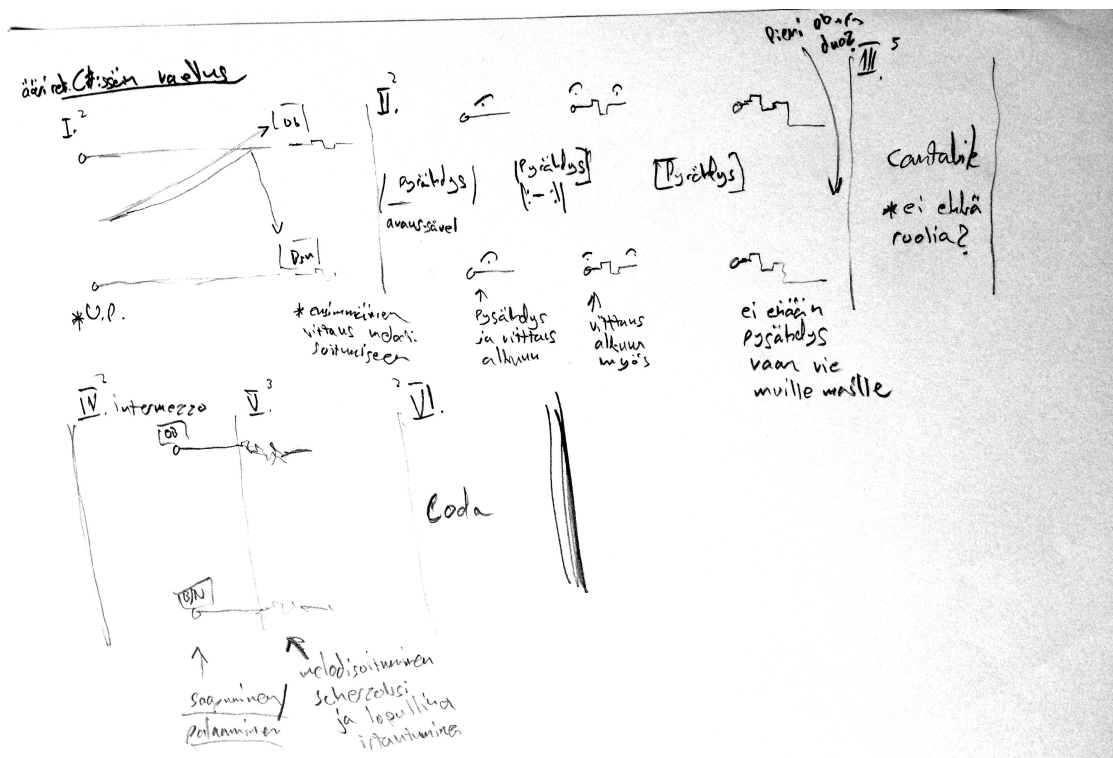 ääri rek. C#:ssän vaellus
I.²
[ob]
[bsn]
*U.P.
* ensimmäinen
viittaus melodi
soitumiseen
II.²
(pyrähdys)
avaus-sävel
[pyrähdys]
|:—:||
[Pyrähdys]
pysähdys
ja viittaus
alkuun
viittaus
alkuun
myös
ei enään
pysähdys
vaan vie
muille maille
pieni ob+fg
duo?
III.⁵
cantabile
*ei ehkä
roolia?
IV.² intermezzo
[OB]
[BSN]
V.³
saapuminen/
palaaminen
melodisoituminen
scherzoksi
ja lopullinen
irtautuminen
² VI.
Coda